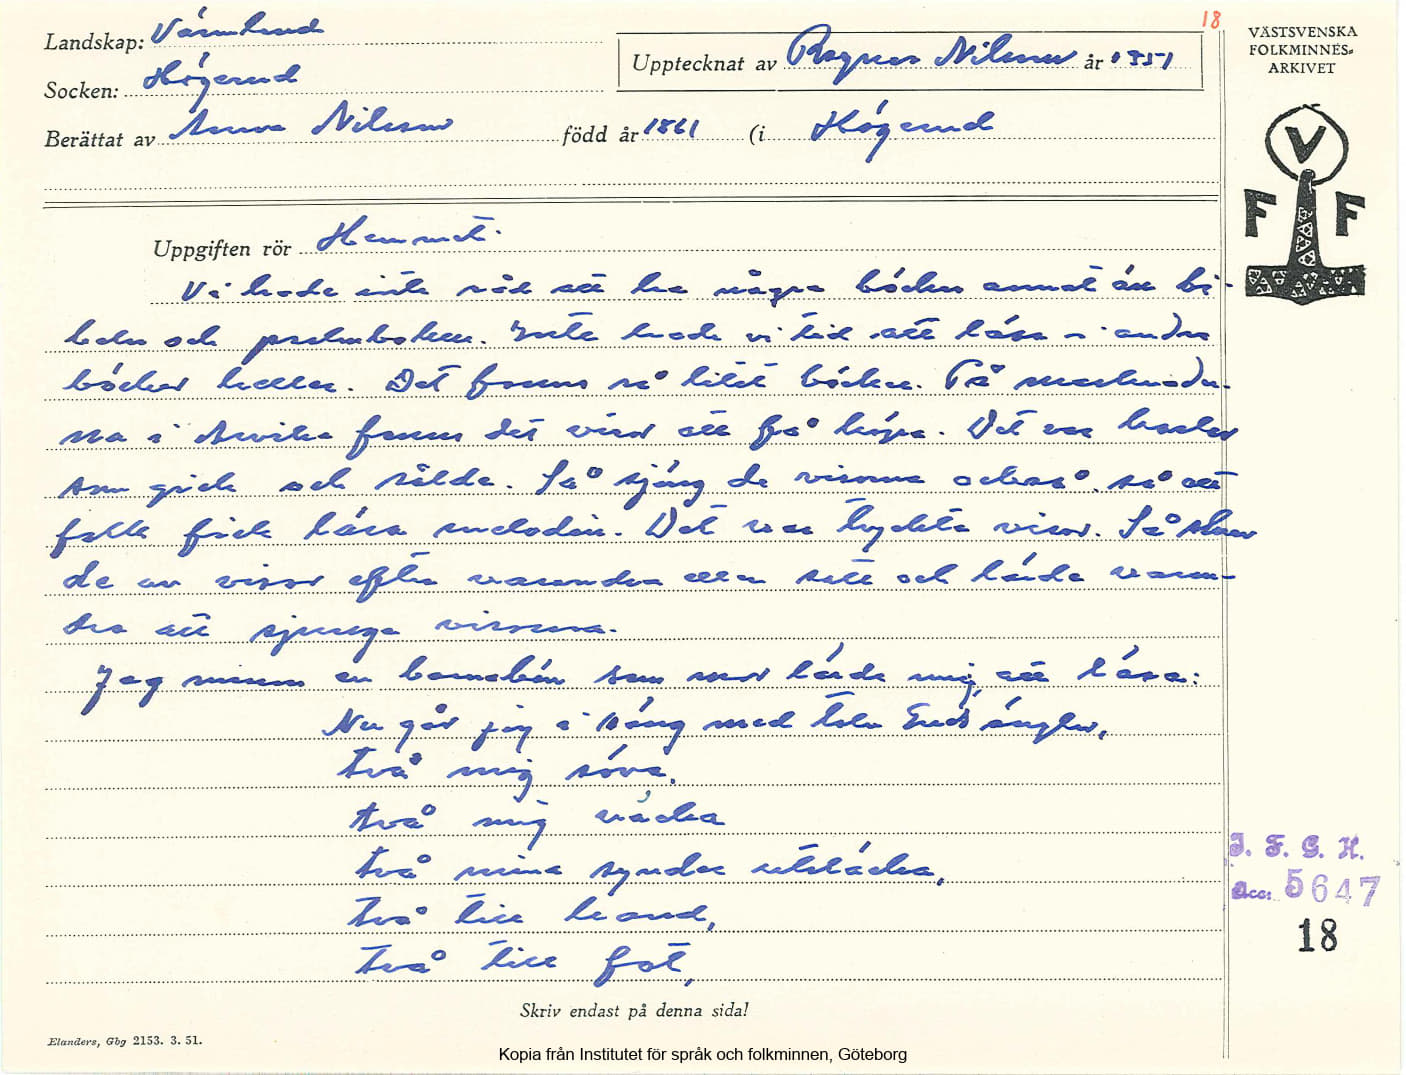 18
Landskap: Värmland
Socken: Högerud
Upptecknat av Ragnar Nilsson år 1951
Berättat av Anna Nilsson född år 1861 (i Högerud
VÄSTSVENSKA
FOLKMINNES-
ARKIVET
V
F F
Uppgiften rör Hemmet.
Vi hade inte råd att ha några böcker annat än bi-
beln och psalmboken. Inte hade vi tid att läsa i andra
böcker heller. Det fanns så litet böcker. På marknader-
na i Arvika fanns det visor att få köpa. Det var karlar
som gick och sålde. Så sjöng de visorna också så att
folk fick lära melodin. Det var tryckta visor. Så skrev
de av visor efter varandra allra sist och lärde varan-
dra att sjunga visorna.
Jag minns en barnabön som mor lärde mig att läsa:
Nu går jag i säng med tolv Guds änglar,
två mig söva,
två mig väcka
två mina synder utsläcka,
två till hand,
två till fot,
I. F. G. H.
Acc: 5647
18
Skriv endast på denna sida!
Elanders, Gbg 2153. 3. 51.
Kopia från Institutet för språk och folkminnen, Göteborg